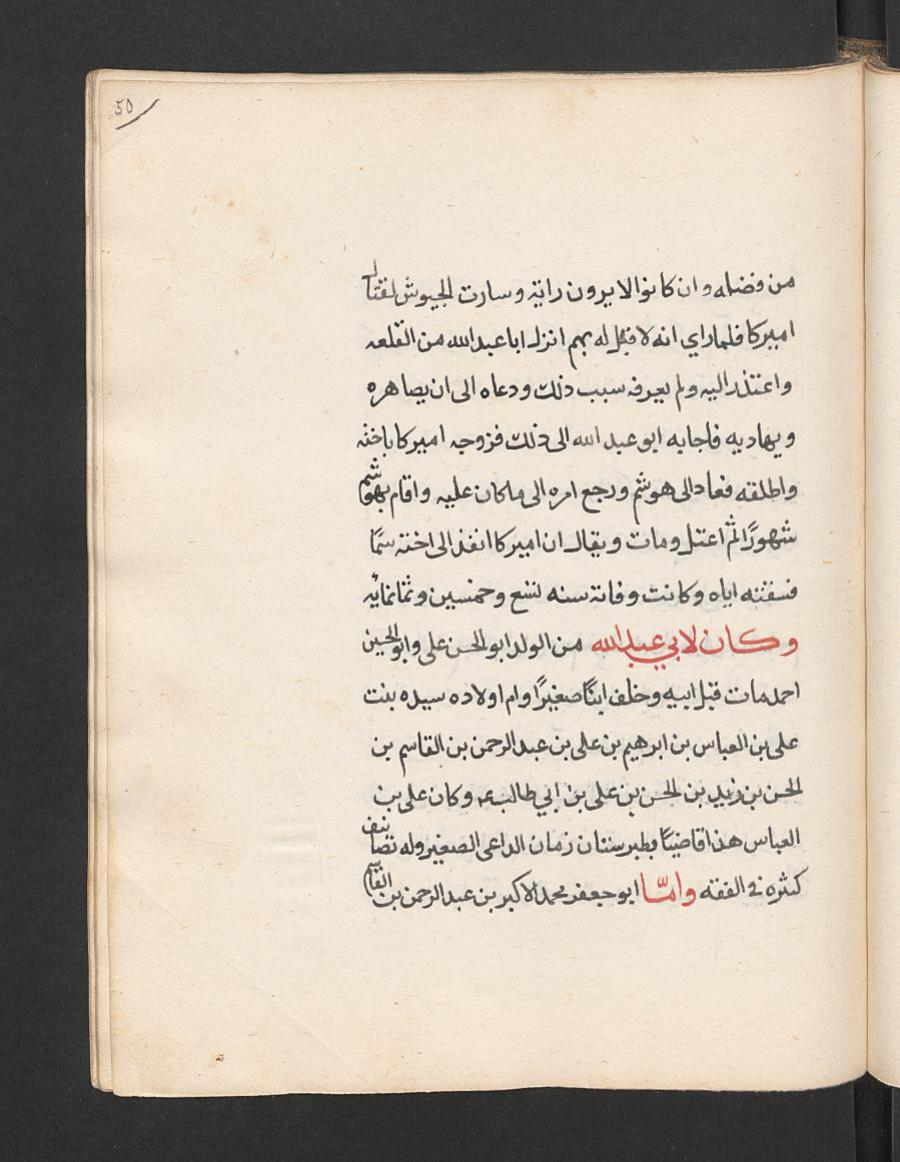 50
من فضله وان كانوا لا يرون راية وسارت الجيوش لقتال
اميركا فلما راي انه لا قبل له بهم انزل ابا عبد الله من القلعه
واعتذر اليه ولم يعرفه سبب ذلك ودعاه الى ان يصاهره
ويهاديه فاجابه ابو عبد الله الى ذلك فزوجه اميركا باخته
واطلقه فعاد الى هوشم ورجع امره الى ما كان عليه واقام بهوشم
شهورًا ثم اعتل ومات ويقال ان اميركا انفذ الى اخته سمًا
فسقته اياه وكانت وفاته سنه تسع وخمسين وثمانمائه
وكان لابي عبد الله من الولد ابو الحسن على وابو الحسين
احمد مات قبل ابيه وخلف ابنًا صغيرًا وام اولاده سيده بنت
على بن العباس بن ابرهيم بن على بن عبد الرحمن بن القاسم بن
الحسن بن زيد بن الحسن بن على بن ابي طالب عم وكان على بن
العباس هذا قاضيًا بطبرستان زمان الداعى الصغير وله تصانيف
كثره في الفقه وامّا ابو جعفر محمد الاكبر بن عبد الرحمن بن القاسم